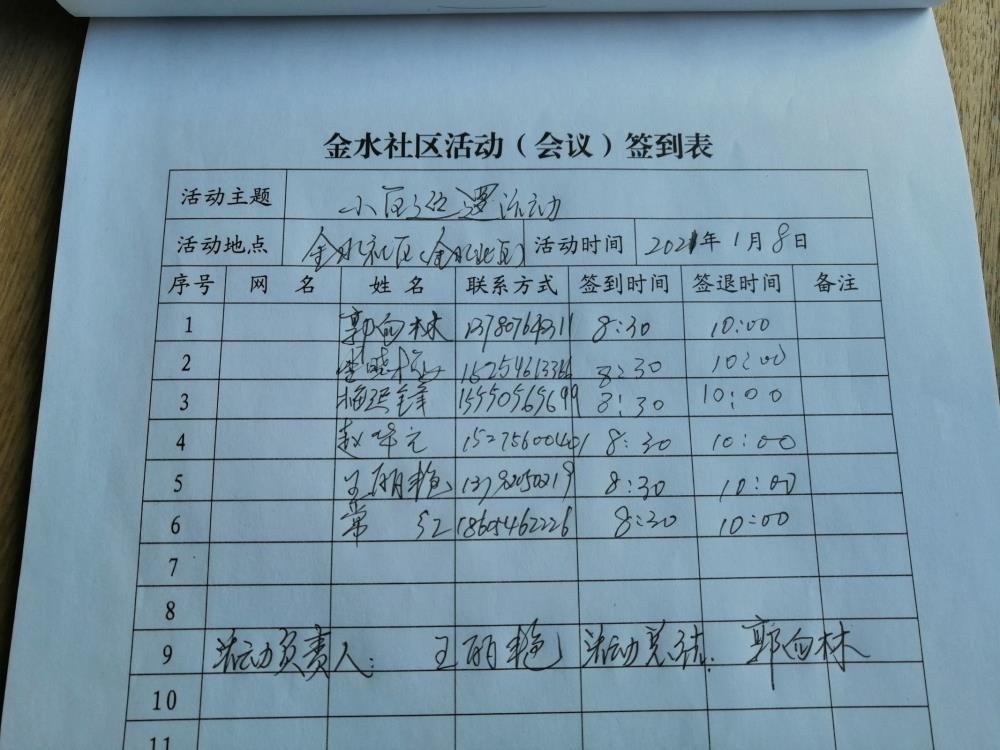 金水社区活动（会议）签到表
活动主题 小区巡逻活动
活动地点 金水社区(金水北区) 活动时间 2021年1月8日
序号 网 名 姓 名 联系方式 签到时间 签退时间 备注
1 郭向林 8:30 10:00
2 李晓梅 8:30 10:00
3 8:30 10:00
4 赵华元 15275600401 8:30 10:00
5 王丽艳 8:30 10:00
6 常红 18605462226 8:30 10:00
7
8
9 活动负责人: 王丽艳 活动总结: 郭向林
10
11